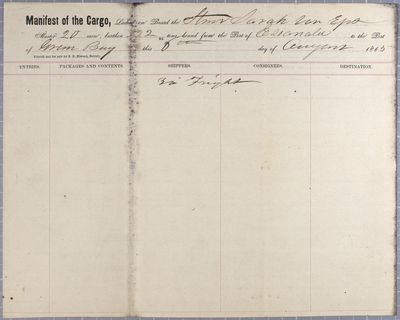 Manifest of the Cargo, Laden on Board the Stmr Sarah Van Eps
Master 20 men, burthen 22 now bound from the Port of Escanaba to the Port
of Green Bay this 8 day of August 1865
ENTRIES. PACKAGES AND CONTENTS. SHIPPERS. CONSIGNEES. DESTINATION.
no Freight